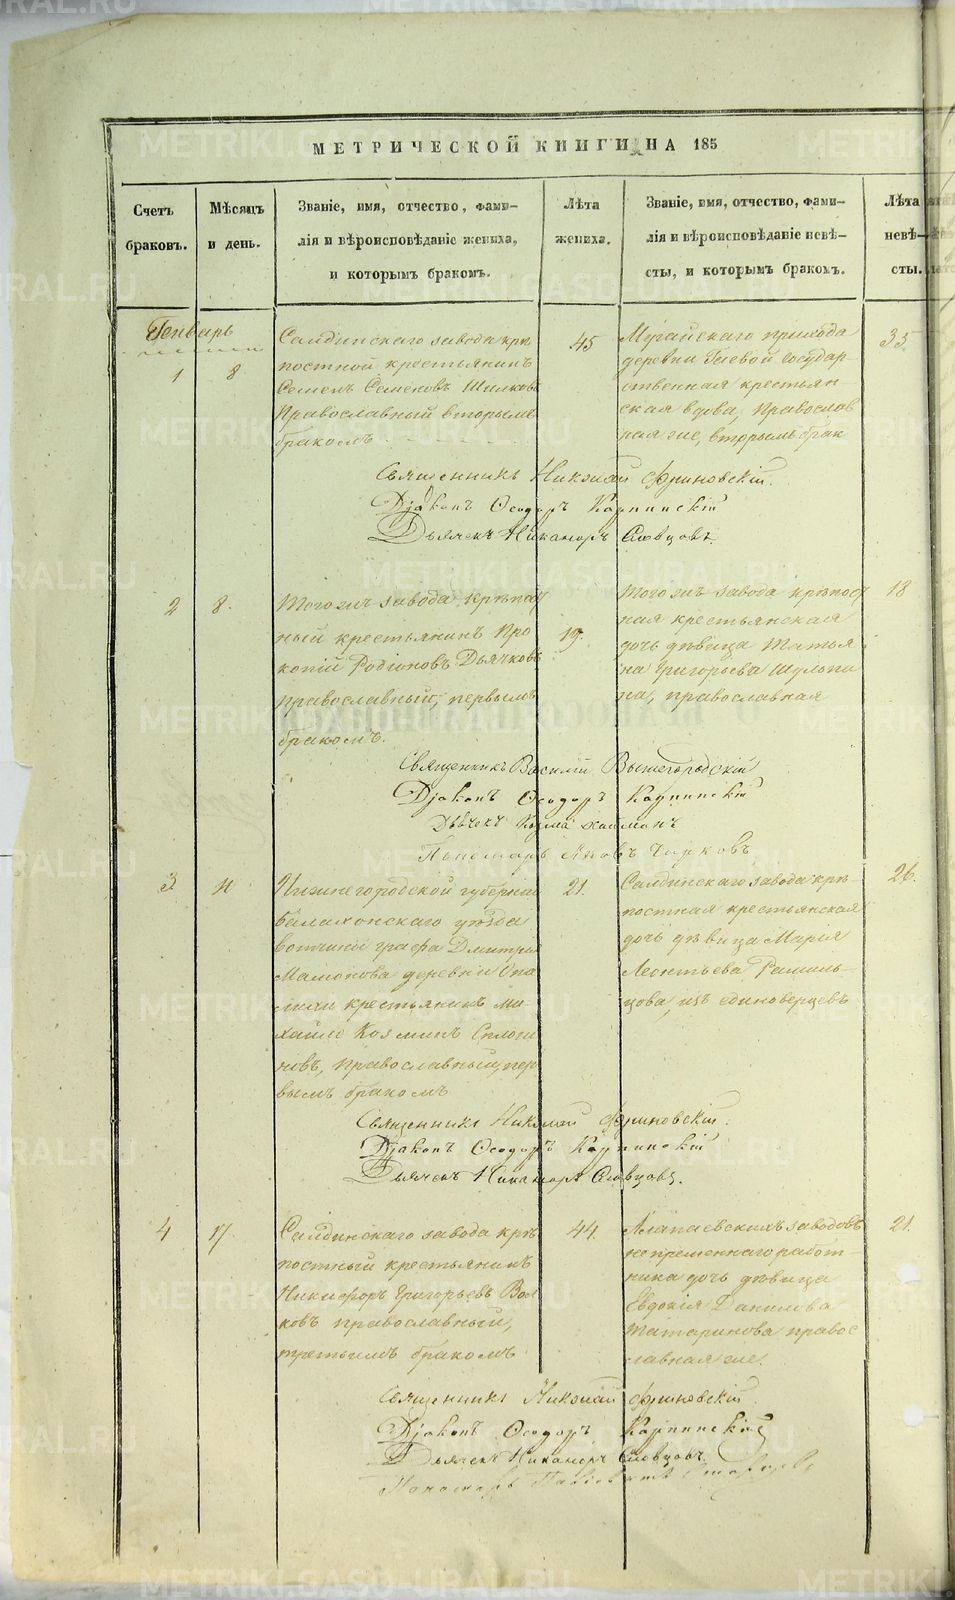 МЕТРИЧЕСКОЙ КНИГИ НА 185
Счетъ браковъ.
Мѣсяцъ и день.
Званіе, имя, отчество, фами-
лія и вѣроисповѣданіе жениха,
и которымъ бракомъ.
Лѣта жениха.
Званіе, имя, отчество, фами-
лія и вѣроисповѣданіе невѣ-
сты, и которымъ бракомъ.
Лѣта невѣ-
сты.
Генварь
1
8
Салдинскаго завода крѣ
постной крестьянинъ
Семенъ Семеновъ Шилковъ
Православный вторымъ
бракомъ
45
Мурайскаго прихода
деревни Гаевой Государ-
ственная крестьян-
ская вдова, Православ
ная же, вторымъ брак
35
Священникъ Николай Фриновскій.
Діаконъ Ѳеодоръ Карпинскій
Дьячекъ Никаноръ Словцовъ.
2
8.
Тогожъ завода крѣпост
ный крестьянинъ Про
копій Родіоновъ Дьячковъ
православный, первымъ
бракомъ.
19.
Тогожъ завода крѣпост
ная крестьянская
дочь дѣвица Татья
на Григорьева Шульпи
на, православная
18
Священникъ Василій Вышегородскій
Діаконъ Ѳеодоръ Карпинскій
Дьячекъ Козма
Пономарь Яковъ Чирковъ
3
11
Нижнегородской губерніи
Балахонскаго уѣзда
вотчины графа Дмитрія
Мамонова деревни
крестьянинъ Ми-
хаилъ Козминъ
новъ, Православный, пер
вымъ бракомъ
21.
Салдинскаго завода крѣ-
постная крестьянская
дочь дѣвица Марія
Леонтьева
цова, изъ единоверцевъ
26.
Священникъ Николай Фриновскій.
Діаконъ Ѳеодоръ Карпинскій
Дьячекъ Никаноръ Словцовъ.
4
17.
Салдинскаго завода крѣ
постный крестьянинъ
Никифоръ Григорьевъ Вол
ковъ православный,
третьимъ бракомъ
44.
Алапаевскихъ заводовъ
непременнаго работ-
ника дочь дѣвица
Евдокія Данилова
Татаринова правос
лавная же.
21.
Священникъ Николай Фриновскій
Діаконъ Ѳеодоръ Карпинскій
Дьячекъ Никаноръ Словцовъ.
Пономарь
METRIKI.GASO-URAL.RU